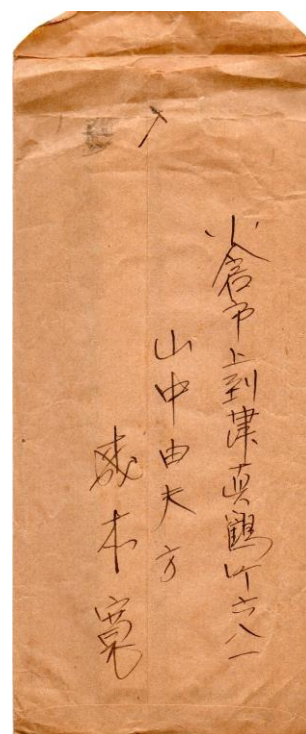 小倉市上到津真鶴町六八一
山中由夫方
成本寛